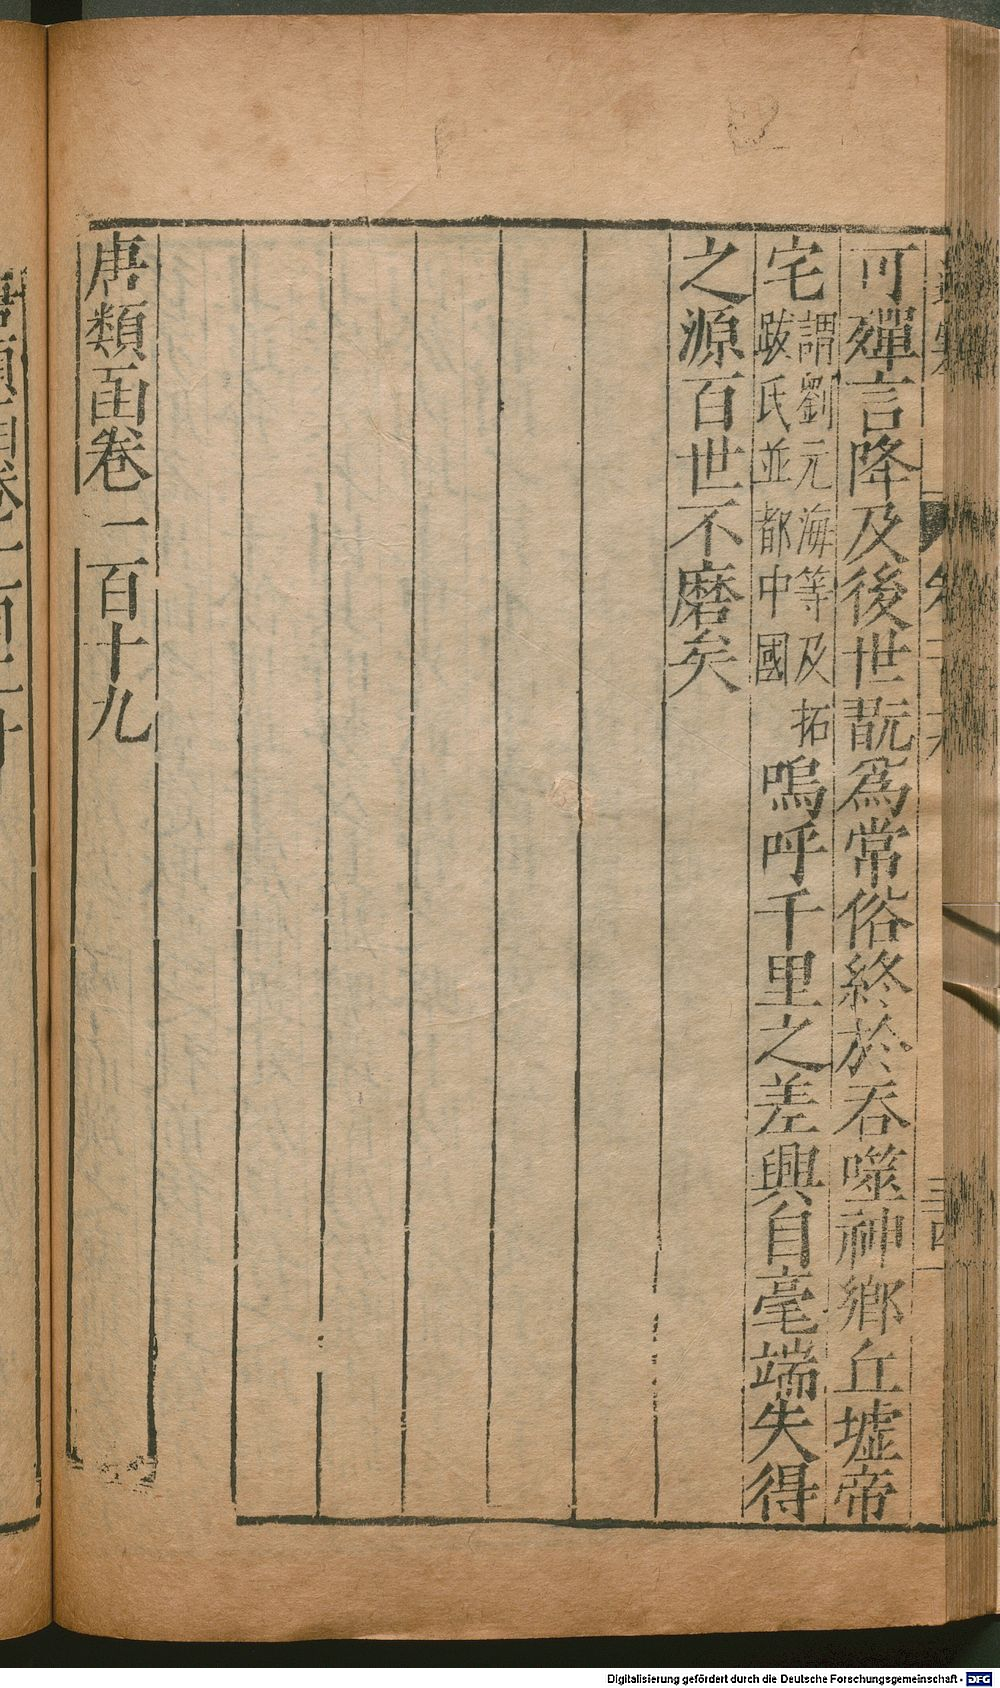 可殫言降及後世翫為常俗終於吞噬神鄉丘墟帝
宅謂劉元海等及拓
跋氏並都中國
嗚呼千里之差興自毫端失得
之源百世不磨矣
唐類函卷一百十九
Digitalisierung gefördert durch die Deutsche Forschungsgemeinschaft - DFG